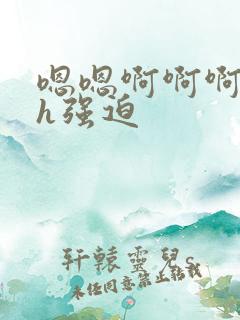 嗯嗯啊啊啊
h强迫
轩辕灵儿s
未经同意禁止转载